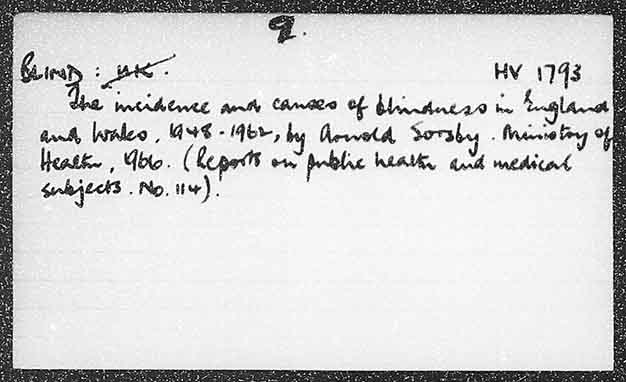 9.
BLIND : UK. HV 1793
The incidence and causes of blindness in England
and Wales, 1948-1962, by Arnold Sorsby. Ministry of
Health, 1966. (Reports on public health and medical
subjects. No. 114).